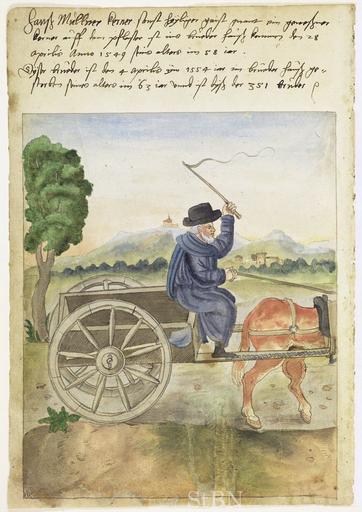 Hanß Müllner kerner sunst
kerner auff dem pflaster ist ins bruder hauß kommen den 28
Aprilis Anno 1549 seins alters im 58 iar.
Dyser bruder ist den 4 Aprilis im 1554 iar im bruder hauß ge-
storben seines alters im 63 iar und ist diß der 351 bruder
StBN